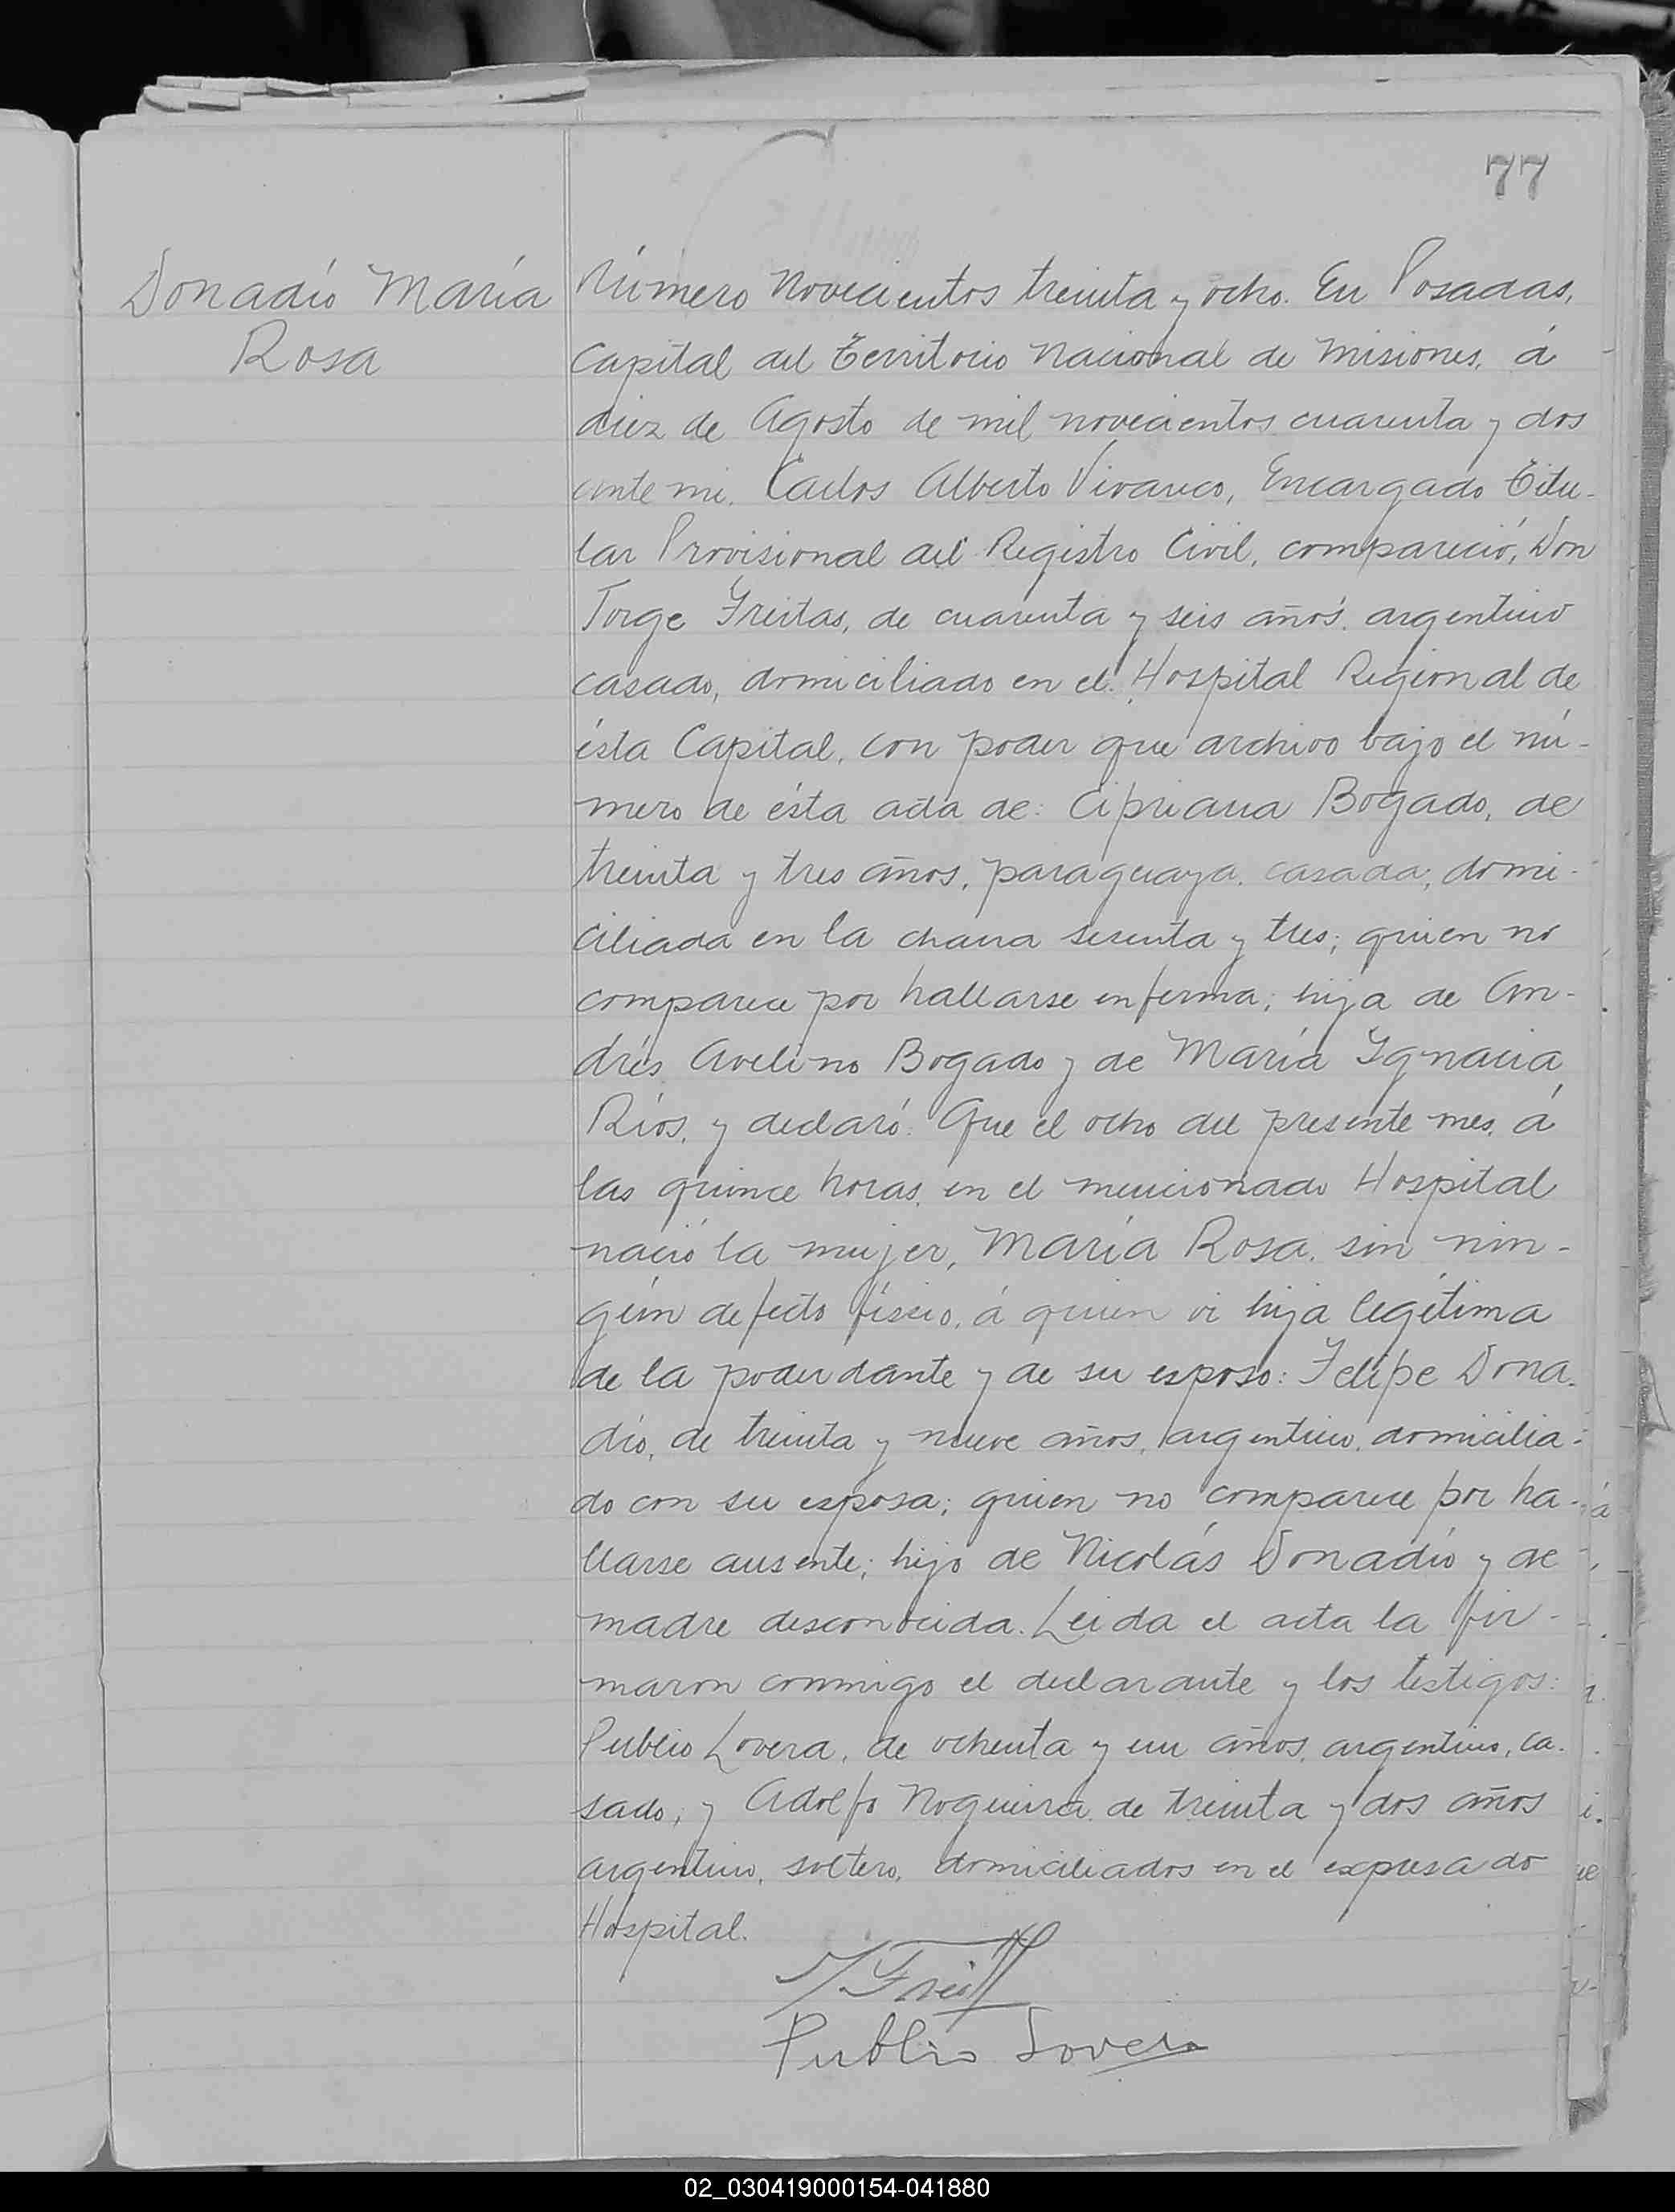 77
Donadío María
Rosa
Número Novecientos treinta y ocho. En Posadas,
Capital del Territorio Nacional de Misiones, á
diez de Agosto de mil novecientos cuarenta y dos
ante mi. Carlos Alberto Vivanco, Encargado Titu-
lar Provisional del Registro Civil, compareció, Don
Jorge Freitas, de cuarenta y seis años. argentino
casado, domiciliado en el Hospital Regional de
ésta Capital, con poder que archivo bajo el nú-
mero de ésta acta de: Cipriana Bogado, de
treinta y tres años, paraguaya. casada, domi-
ciliada en la chacra sesenta y tres; quien no
comparece por hallarse enferma; hija de An-
drés Avelino Bogado y de María Ygnacia
Ríos, y declaró: Que el ocho del presente mes, á
las quince horas, en el mencionado Hospital
nació la mujer, María Rosa, sin nin-
gún defecto físico, á quien vi hija legítima
de la poderdante y de su esposo: Felipe Dona-
dío, de treinta y nueve años, argentino, domicilia-
do con su esposa; quien no comparece por ha-
llarse ausente; hijo de Nicolás Donadío y de
madre desconocida. Leida el acta la fir-
maron conmigo el declarante y los testigos:
Publio Lovera, de ochenta y un años, argentino, ca-
sado, y Adolfo Nogueira de treinta y dos años
argentino, soltero, domiciliados en el expresado
Hospital.
Publio Lovera
02_030419000154-041880